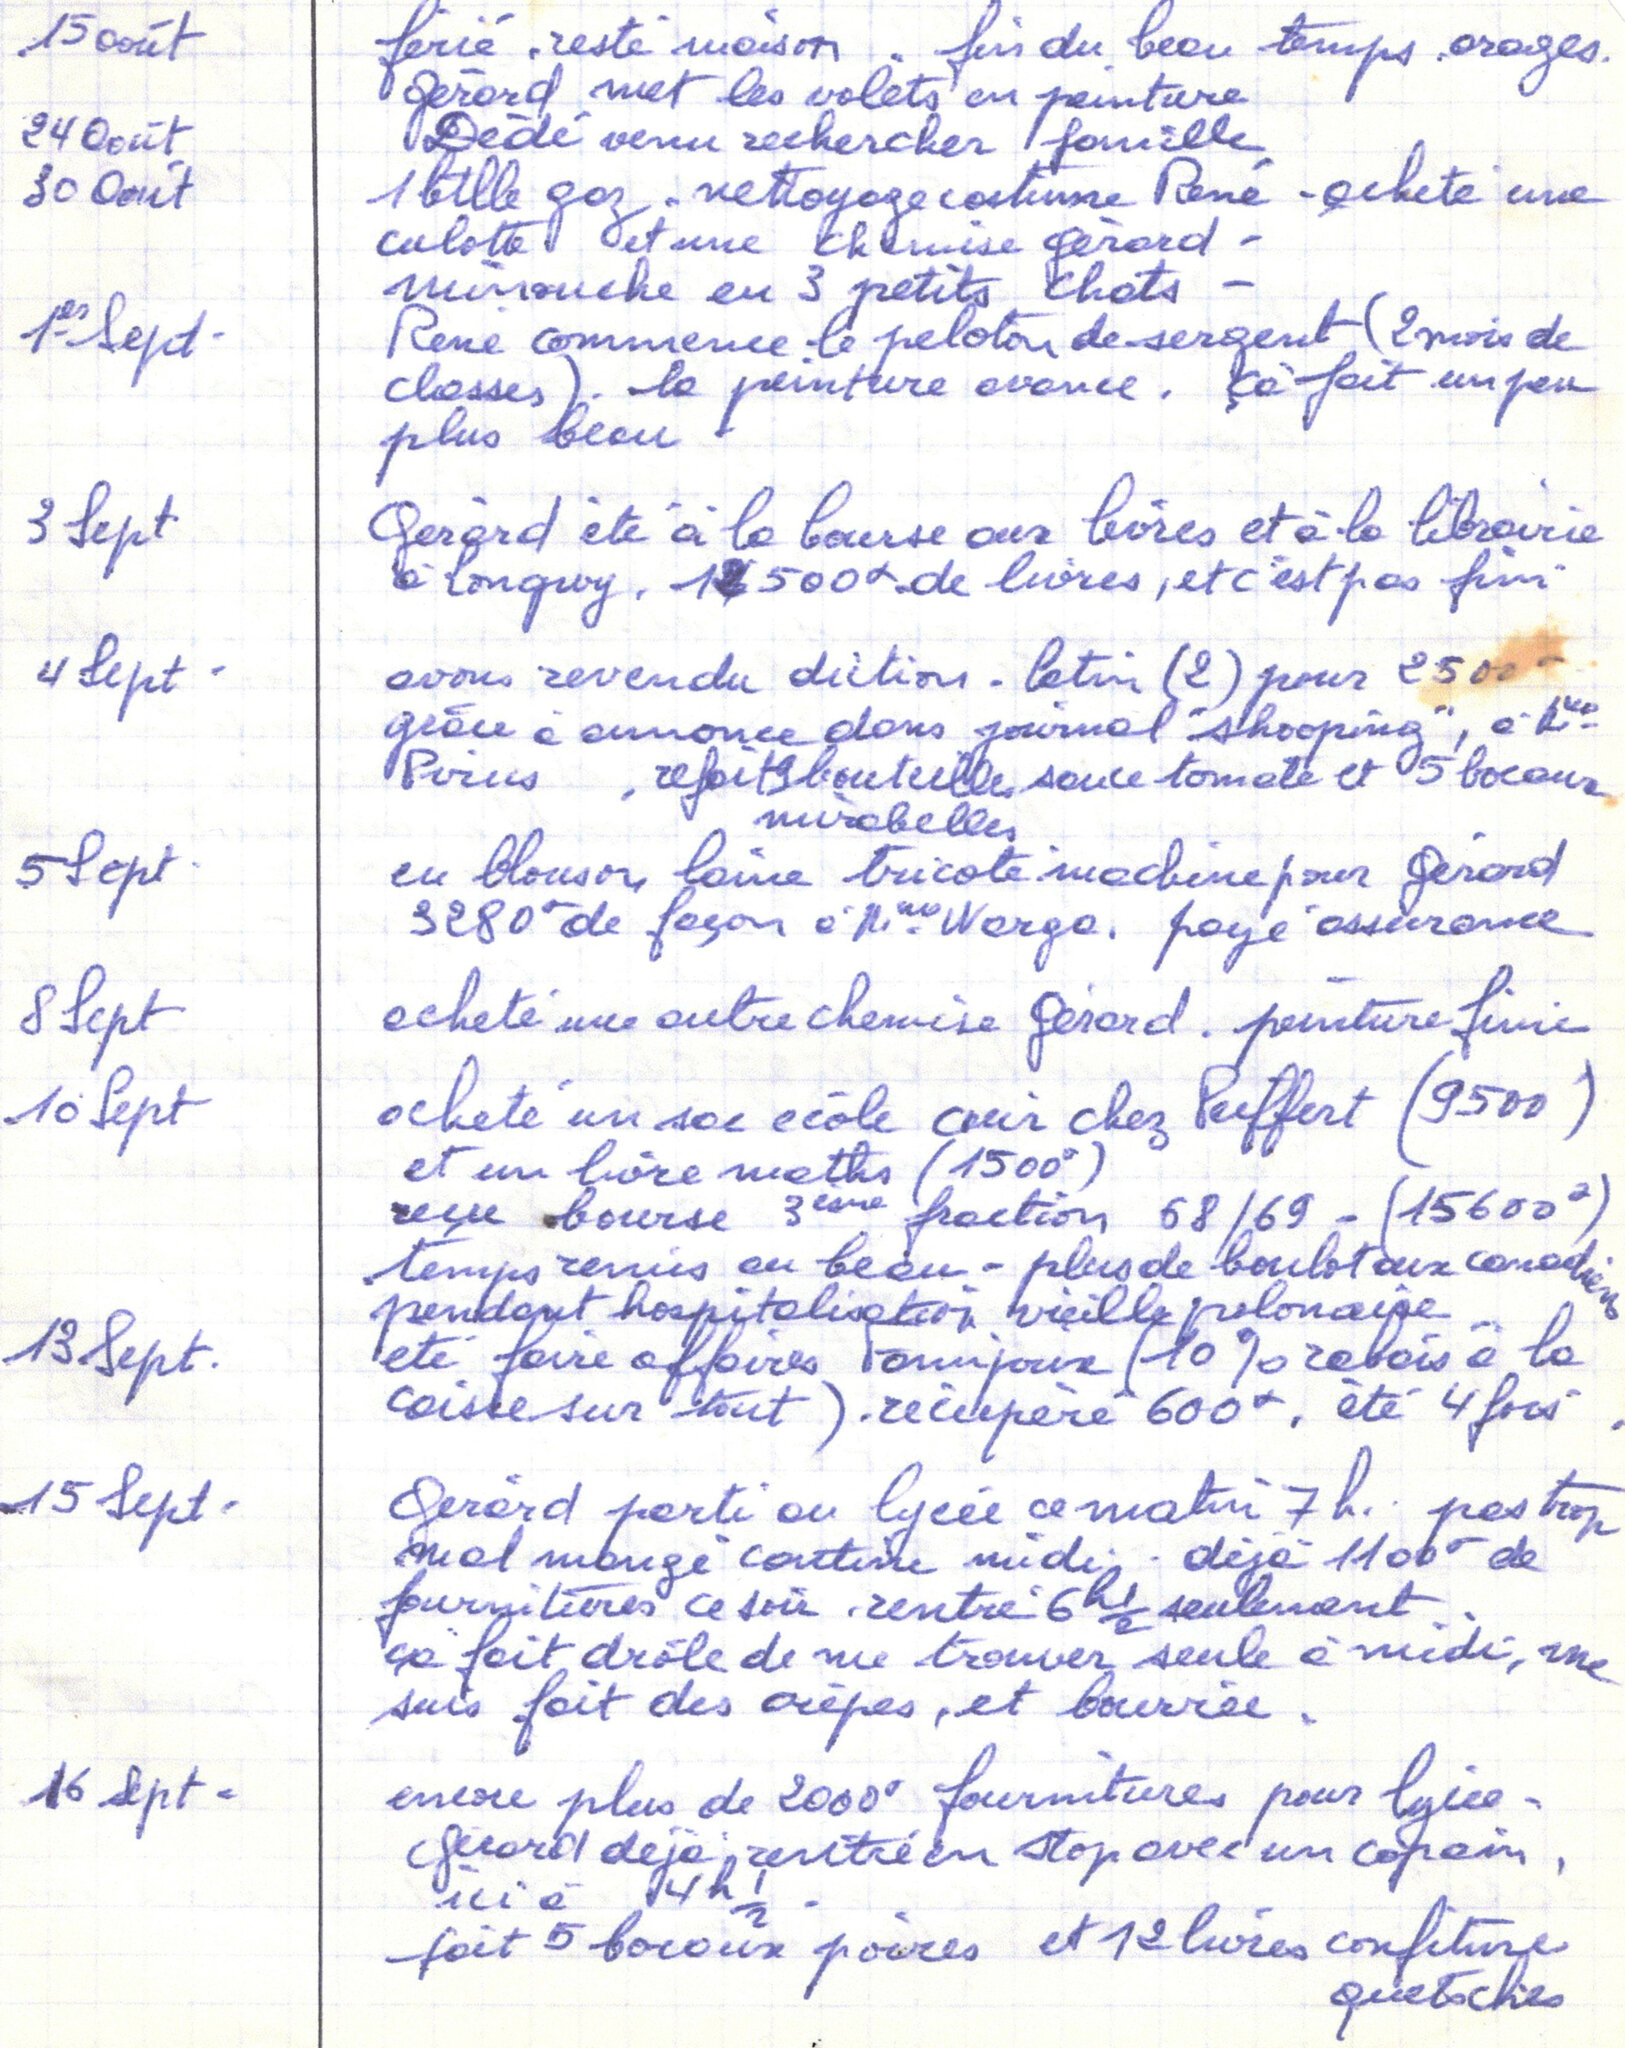 15 août férié . resté maison . fin du beau temps . orages.
Gérard met les volets en peinture
24 Août Dédé venu rechercher famille
30 Août 1 btlle gaz . nettoyage costume René - acheté une
culotte et une chemise Gérard -
Minouche eu 3 petits chats -
1er Sept - René commence le peloton de sergent (2 mois de
classes) . la peinture avance . ça fait un peu
plus beau -
3 Sept Gérard été à la bourse aux livres et à la librairie
à Longwy . 12500f de livres , et c'est pas fini
4 Sept - avons revendu diction . latin (2) pour 2500
grâce à annonce dans journal "shooping", à Mme
Pirus , refait 3 bouteilles sauce tomate et 5 bocaux
mirabelles
5 Sept - eu blouson laine tricoté machine pour Gérard
3280f de façon à Mme Warga . payé assurance
8 Sept acheté une autre chemise Gérard . peinture finie
10 Sept acheté un sac école cuir chez Puffert (9500)
et un livre maths (1500f)
reçu bourse 3ème fraction 68/69 - (15600f)
temps remis au beau - plus de boulot aux canadiens
pendant hospitalisation vieille polonaise
13 Sept. été faire affaires Tamijoux (10% rabais à la
caisse sur tout) . récupéré 600f . été 4 fois .
15 Sept - Gérard parti au lycée ce matin 7 h . pas trop
mal mangé cantine midi . déjà 1100f de
fournitures ce soir . rentré 6h 1/2 seulement .
ça fait drôle de me trouver seule à midi , me
suis fait des crêpes , et bourrée .
16 Sept - encore plus de 2000f fournitures pour lycée -
Gérard déjà rentré en stop avec un copain ,
ici à 4h 1/2 -
fait 5 bocaux poires et 12 livres confiture
quetsches